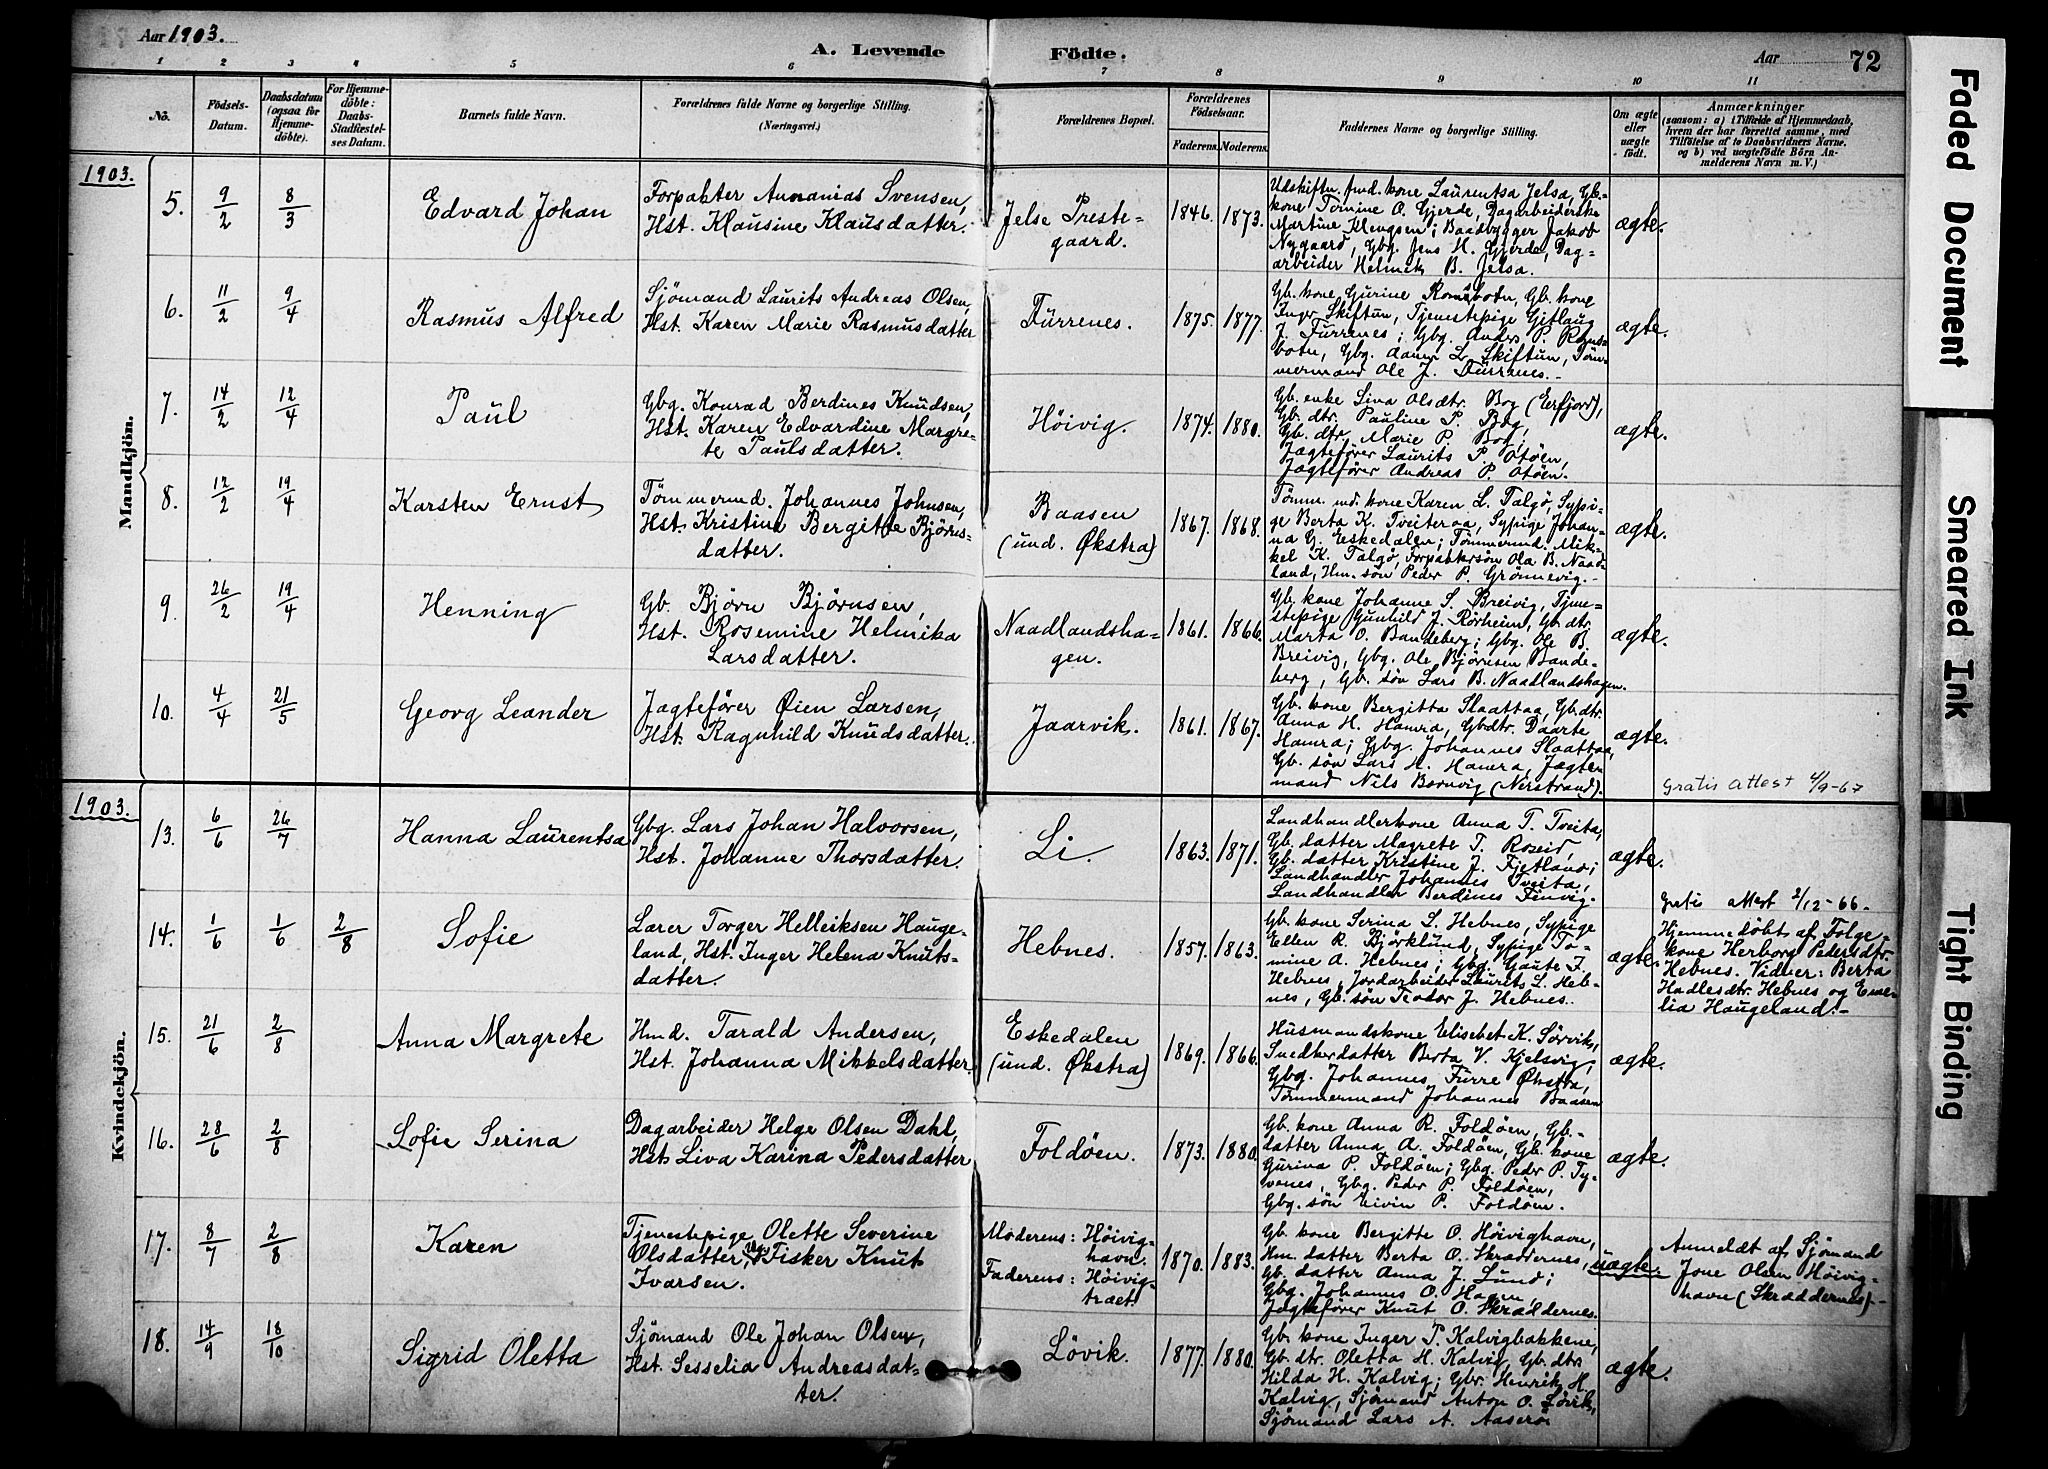 Aar 1903.
A. Levende Födte.
Aar 72
1 2 3 4 5 6 7 8 9 10 11
No.
Födsels-Datum.
Daabsdatum (ogsaa for Hjemmedöbte).
For Hjemmedöbte: Daabs-Stadfæstelses Datum.
Barnets fulde Navn.
Forældrenes fulde Navne og borgerlige Stilling.
(Næringsvei.)
Forældrenes Bopæl.
Forældrenes Födselsaar.
Faderens. Moderens.
Faddernes Navne og borgerlige Stilling.
Om ægte eller uægte födt.
Anmærkninger
(saasom: a) i Tilfælde af Hjemmedaab,
hvem der har forrettet samme, med
Tilföielse af to Daabsvidners Navne.
og b) ved uægtefödte Börn An-
melderens Navn m. V.)
Mandkjön.
1903.
5. 9/2 8/3
Edvard Johan
Forpakter Annanias Svensen,
Hst. Klausine Klausdatter.
Jelse Preste-
gaard.
1846. 1873.
Udskiftn. fmd. kone Laurentsa Jelsa, Gb.
kone Tomine O. Gjerde, Dagarbeiderske
Martine Klengsen; Baadbygger Jakob
Nygaard, Gbg. Jens H. Gjerde, Dag-
arbeider Helmik B. Jelsa.
ægte.
6. 11/2 9/4
Rasmus Alfred
Sjömand Laurits Andreas Olsen,
Hst. Karen Marie Rasmusdatter
Furrenes.
1875. 1877.
Gb. kone Gurine Romsbotn, Gb. kone
Inger Skiftun, Tjenestepige Gitlaug
J. Furrenes; Gbg. Anders P. Roms-
botn, Gbg. Aanen L. Skiftun, Töm-
mermand Ole J. Furrenes.
ægte.
7. 14/2 12/4
Paul
Gbg. Konrad Berdines Knudsen,
Hst. Karen Edvardine Margre-
te Paulsdatter.
Höivig.
1874. 1880.
Gb. enke Liva Olsdtr. Bog (Erfjord),
Gb. dtr. Pauline P. Bog,
Gb. dtr. Marie P. Bog,
Jagtefører Laurits P. Otöen,
Jagtefører Andreas P. Otöen.
ægte.
8. 12/2 19/4
Karsten Ernst
Tömmermd. Johannes Johnsen,
Hst. Kristine Bergitte Björns-
datter.
Baasen
(und. Økstra)
1867. 1868.
Tömm. md. kone Karen L. Talgö, Sypi-
ge Berta K. Tveiteraa, Sypige Johan-
na G. Eskedalen; Tömmermd. Mik-
kel K. Talgö, Forpaktersön Ola B. Naad-
land, Hm. sön Peder P. Grönnevig.
ægte.
9. 26/2 19/4
Henning
Gb. Björn Björnsen,
Hst. Rosemine Helmika
Larsdatter.
Naadlandsha-
gen.
1861. 1866.
Gb. kone Johanne S. Breivig, Tjene-
stepige Gunhild J. Rörheim, Gb. dtr.
Marta O. Bandeberg; Gbg. Ole B.
Breivig, Gbg. Ole Björnsen Bande-
berg, Gb. sön Lars B. Naadlandshagen.
ægte.
10. 4/4 21/5
Georg Leander
Jagtefører Øien Larsen,
Hst. Ragnhild Knudsdatter.
Jaarvik.
1861. 1867.
Gb. kone Bergitta Slaattaa, Gb. dtr.
Anna H. Hamra, Gb. dtr. Daarte
Hamra; Gbg. Johannes Slaattaa,
Gb. sön Lars H. Hamra, Jagte-
mand Nils Barnvig (Nerstrand).
ægte.
Gratis attest 4/9-67
Kvindekjön.
1903.
13. 6/6 26/7
Hanna Laurentsa
Gbg. Lars Johan Halvorsen,
Hst. Johanne Thorsdatter.
Li.
1863. 1871.
Landhandlerkone Anna T. Tveita,
Gb. datter Magrete T. Roseid,
Gb. datter Kristine J. Fjetland;
Landhandler Johannes Tveita,
Landhandler Berdines Finvig.
ægte.
14. 1/6 1/6 2/8
Sofie
Lærer Torger Helleiksen Hauge-
land, Hst. Inger Helena Knuts-
datter.
Hebnes.
1857. 1863.
Gb. kone Serina S. Hebnes, Sypige
Ellen R. Björklund, Sypige To-
mine A. Hebnes; Gbg. Gaute J.
Hebnes, Jordarbeider Laurits L. Heb-
nes, Gb. sön Teodor J. Hebnes.
ægte.
Gratis attest 2/12-66.
Hjemmedöbt af Folge-
kone Herborg Pedersdtr.
Hebnes. Vidner: Berta
Hadlesdtr. Hebnes og Eme-
lia Haugeland.
15. 21/6 2/8
Anna Margrete
Hmd. Tarald Andersen,
Hst. Johanna Mikkelsdatter.
Eskedalen
(und. Økstra)
1869. 1866.
Husmandskone Elisebet K. Sörvik,
Snedkerdatter Berta V. Kjelsvig,
Gbg. Johannes Furre Økstra,
Tömmermand Johannes Baasen
ægte.
16. 28/6 2/8
Sofie Serina
Dagarbeider Helge Olsen Dahl,
Hst. Liva Karina Pedersdatter
Foldöen.
1873. 1880.
Gb. kone Anna R. Foldöen, Gb.-
datter Anna A. Foldöen, Gb. kone
Gurina P. Foldöen; Gbg. Peder P. Ty-
venes, Gbg. Peder P. Foldöen,
Gbg. sön Eivin P. Foldöen.
ægte.
17. 8/7 2/8
Karen
Tjenestepige Olette Severine
Olsdatter, Fisker Knut
Ivarsen.
Moderens: Höivig-
havn.
Faderens: Höivig-
træet
1870. 1883.
Gb. kone Bergitte O. Höivighavn,
Hm. datter Berta O. Skræddernes,
Gb. datter Anna J. Lund;
Gbg. Johannes O. Hagen,
Jagtefører Knut O. Skræddernes.
uægte.
Anmeldt af Sjömand
Jone Olsen Höivig-
havn (Skræddernes)
18. 14/9 18/10
Sigrid Oletta
Sjömand Ole Johan Olsen,
Hst. Sesselia Andreasdat-
ter.
Lövik.
1877. 1880.
Gb. kone Inger T. Kalvigbakkene,
Gb. dtr. Oletta H. Kalvig, Gb. dtr.
Hilda H. Kalvig; Gbr. Henrik H.
Kalvig, Sjömand Anton O. Lövik,
Sjömand Lars A. Aaserö
ægte.
Faded Document
Smeared Ink
Tight Binding